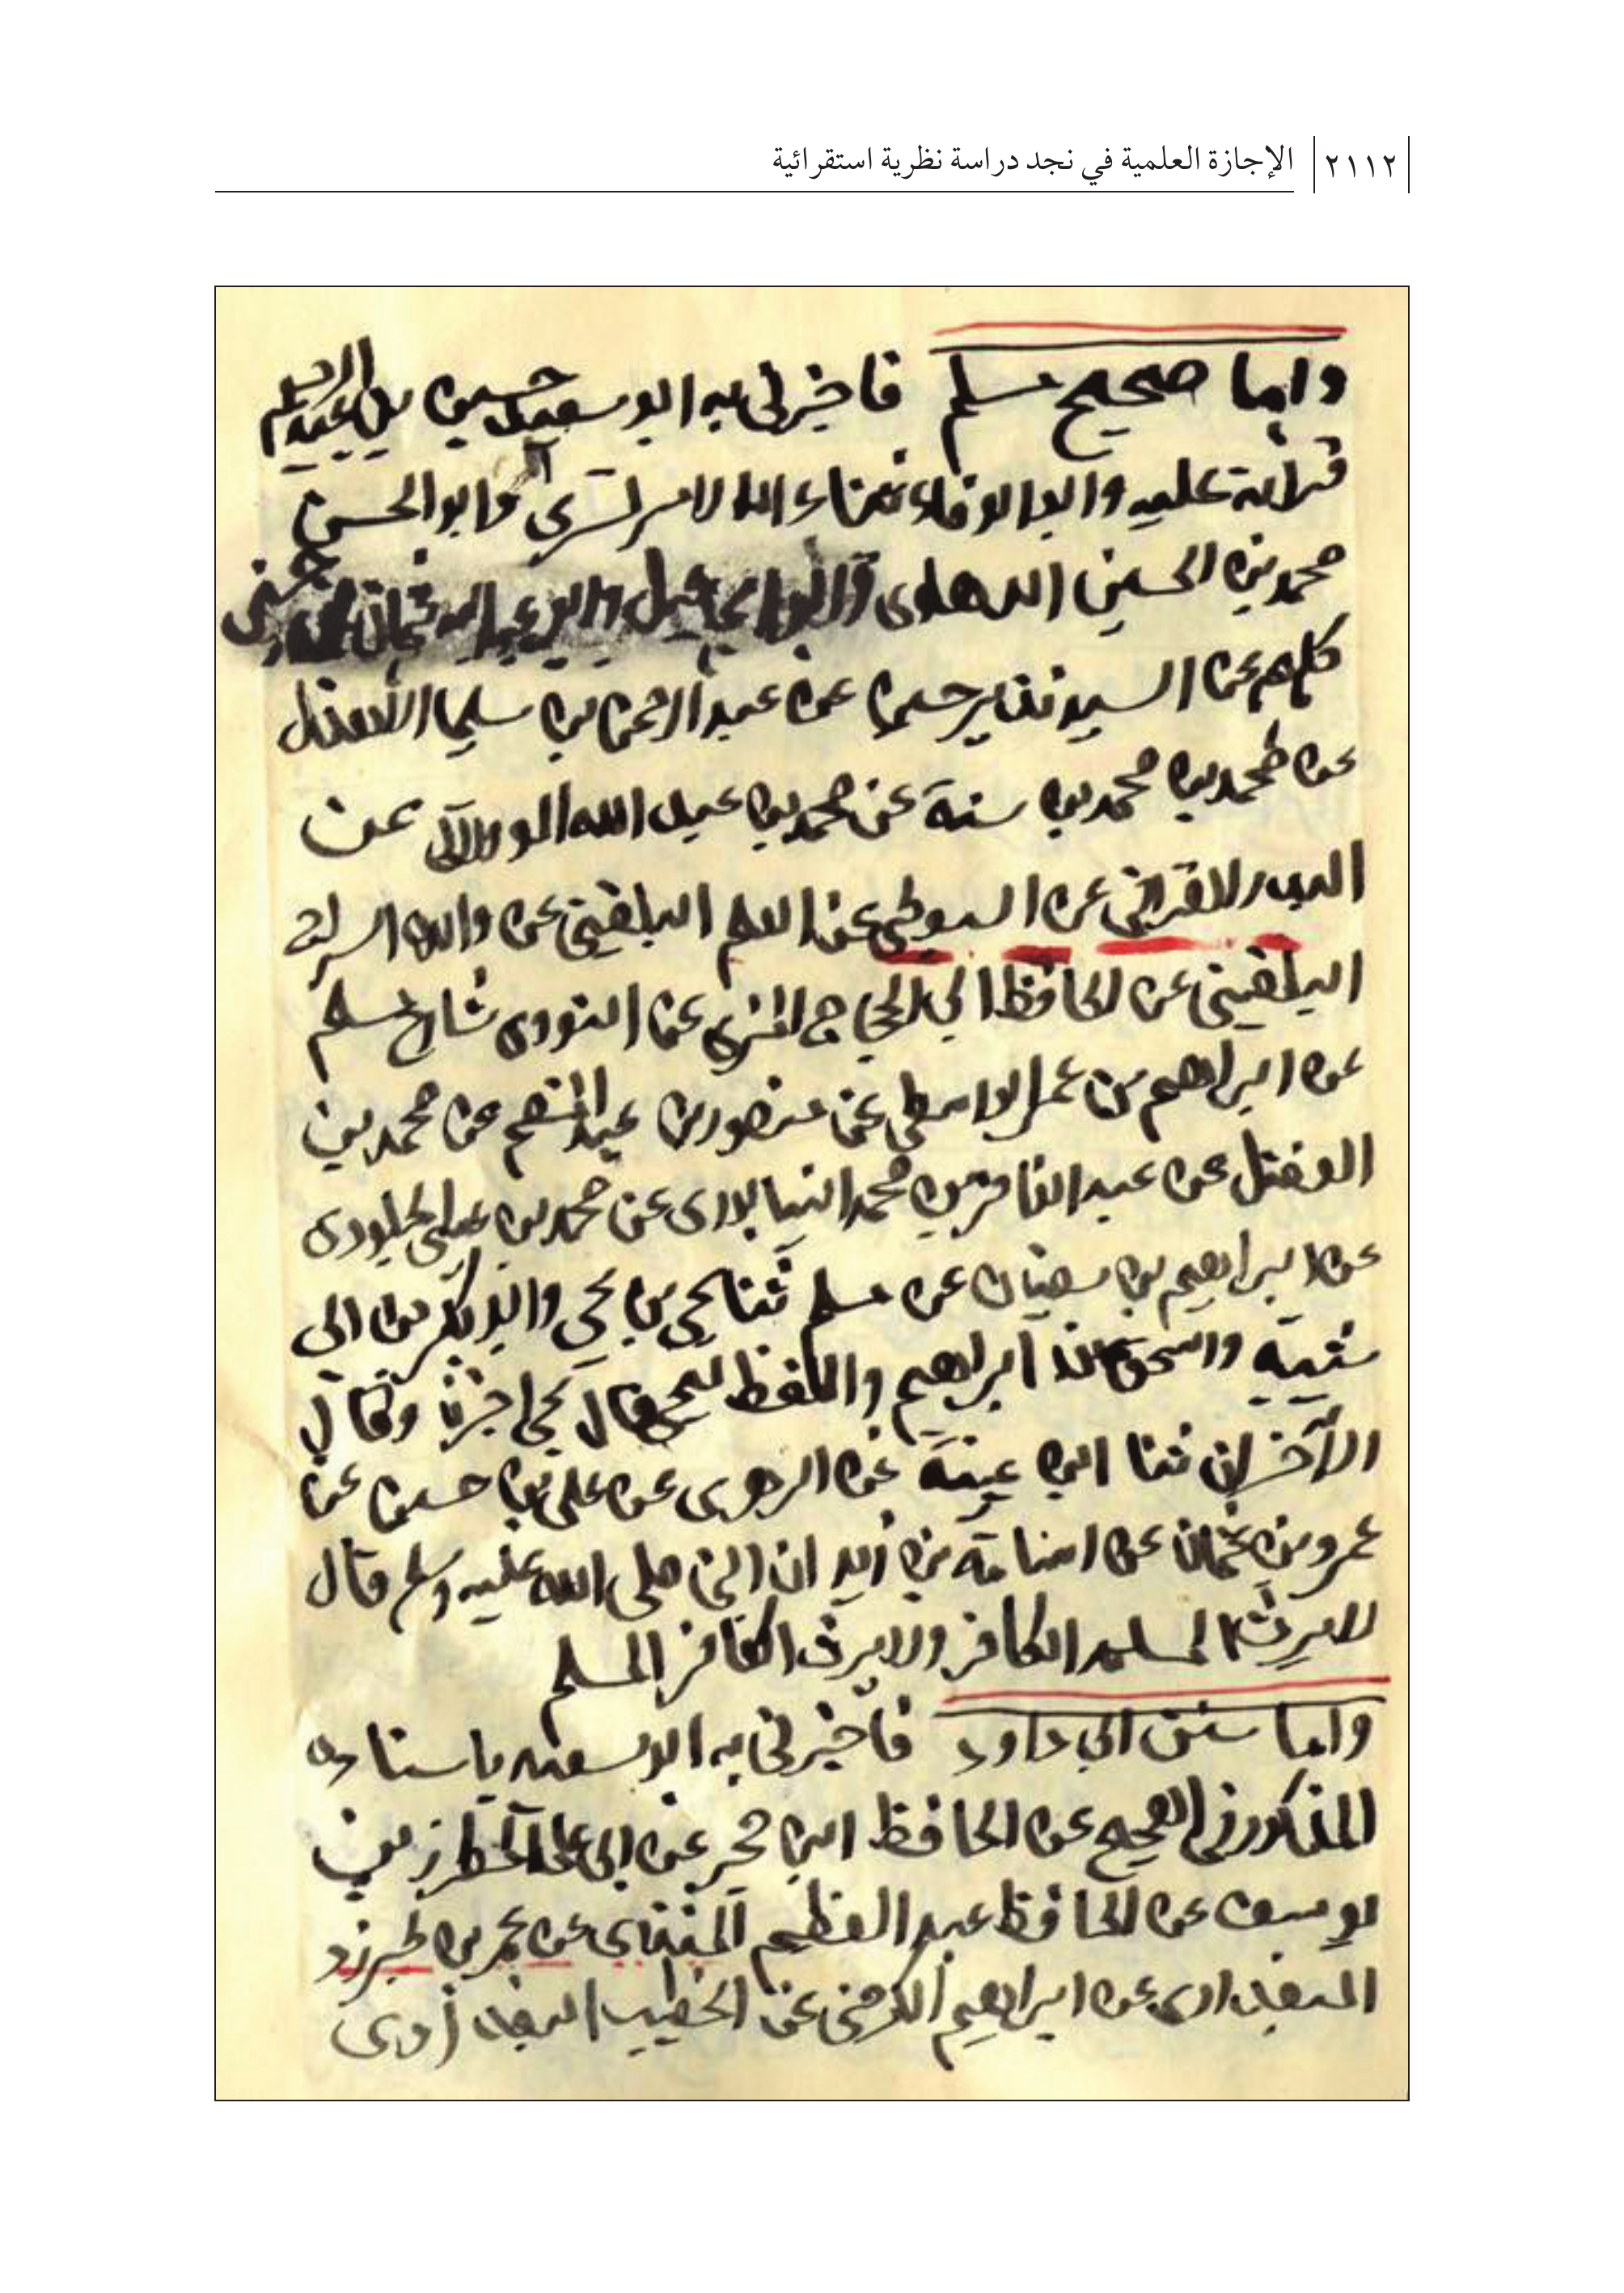 ٢١١٢ الإجازة العلمية في نجد دراسة نظرية استقرائية
واما صحيح مسلم فاخبرني به ابو سعيد حسين بن عبد الرحيم
قرائة عليه وابو الوفاء ثناء الله الامرتسري وابو الحسن
محمد بن الحسين الدهلوى
كلهم عن السيد نذير حسين عن عبد الرحمن بن سليمان الاهدل
عن محمد بن محمد بن سنة عن محمد بن عبد الله الولاتي عن
البدر القرافي عن السيوطي عن العلم البلقيني عن والده السراج
البلقيني عن الحافظ ابي الحجاج المزي عن النووى شارح مسلم
عن ابراهيم بن عمر الواسطي عن منصور بن عبد المنعم عن محمد بن
الفضل عن عبد الغافر بن محمد النيسابورى عن محمد بن عيسى الجلودى
عن ابراهيم بن سفيان عن مسلم ثنا يحيى بن يحيى وابو بكر بن ابى
شيبة واسحق بن ابراهيم واللفظ ليحيى قال يحيى اخبرنا وقال
الآخران ثنا ابن عيينة عن الزهرى عن علي بن حسين عن
عمرو بن عثمان عن اسامة بن زيد ان النبي صلى الله عليه وسلم قال
لا يرث المسلم الكافر ولا يرث الكافر المسلم
واما سنن ابي داود فاخبرني به ابو سعيد باسناده
المذكور في الصحيح عن الحافظ ابن حجر عن ابى على المطرز بن
يوسف عن الحافظ عبد العظيم المنذرى عن عمر بن طبرزد
البغدادى عن ابراهيم الكرخي عن الخطيب البغدادى